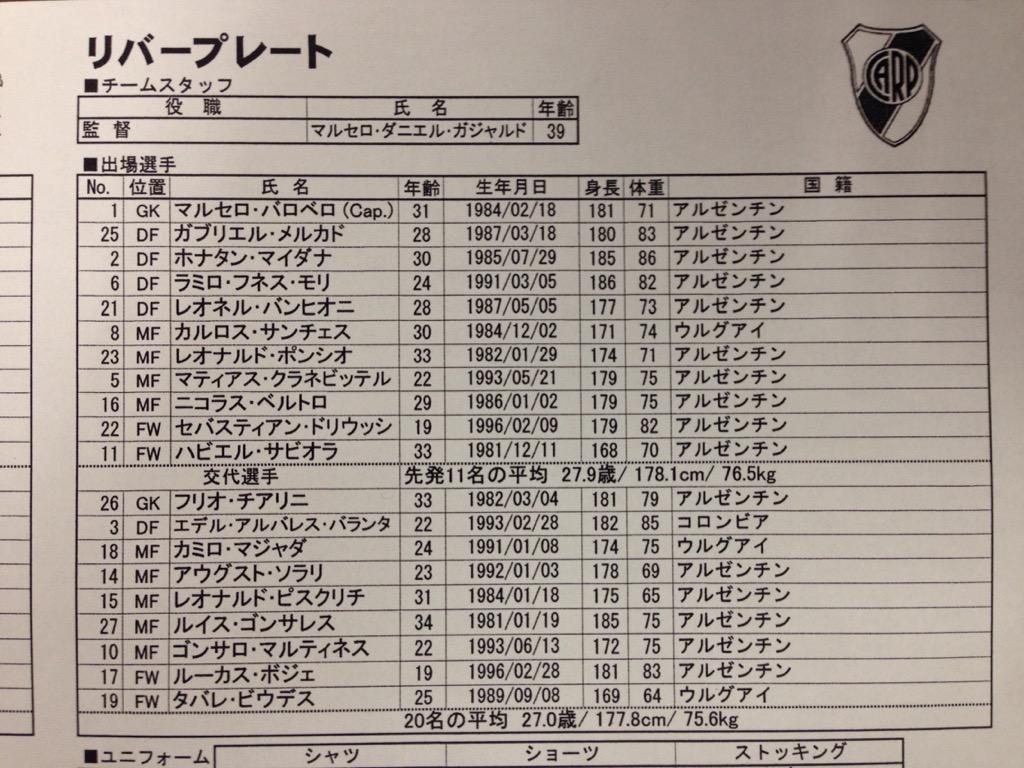 リバープレート
CARP
■チームスタッフ
役 職 氏 名 年齢
監 督 マルセロ・ダニエル・ガジャルド 39
■出場選手
No. 位置 氏 名 年齢 生年月日 身長 体重 国 籍
1 GK マルセロ・バロベロ (Cap.) 31 1984/02/18 181 71 アルゼンチン
25 DF ガブリエル・メルカド 28 1987/03/18 180 83 アルゼンチン
2 DF ホナタン・マイダナ 30 1985/07/29 185 86 アルゼンチン
6 DF ラミロ・フネス・モリ 24 1991/03/05 186 82 アルゼンチン
21 DF レオネル・バンヒオニ 28 1987/05/05 177 73 アルゼンチン
8 MF カルロス・サンチェス 30 1984/12/02 171 74 ウルグアイ
23 MF レオナルド・ポンシオ 33 1982/01/29 174 71 アルゼンチン
5 MF マティアス・クラネビッテル 22 1993/05/21 179 75 アルゼンチン
16 MF ニコラス・ベルトロ 29 1986/01/02 179 75 アルゼンチン
22 FW セバスティアン・ドリウッシ 19 1996/02/09 179 82 アルゼンチン
11 FW ハビエル・サビオラ 33 1981/12/11 168 70 アルゼンチン
交代選手 先発11名の平均 27.9歳/ 178.1cm/ 76.5kg
26 GK フリオ・チアリニ 33 1982/03/04 181 79 アルゼンチン
3 DF エデル・アルバレス・バランタ 22 1993/02/28 182 85 コロンビア
18 MF カミロ・マジャダ 24 1991/01/08 174 75 ウルグアイ
14 MF アウグスト・ソラリ 23 1992/01/03 178 69 アルゼンチン
15 MF レオナルド・ピスクリチ 31 1984/01/18 175 65 アルゼンチン
27 MF ルイス・ゴンサレス 34 1981/01/19 185 75 アルゼンチン
10 MF ゴンサロ・マルティネス 22 1993/06/13 172 75 アルゼンチン
17 FW ルーカス・ボジェ 19 1996/02/28 181 83 アルゼンチン
19 FW タバレ・ビウデス 25 1989/09/08 169 64 ウルグアイ
20名の平均 27.0歳/ 177.8cm/ 75.6kg
■ユニフォーム シャツ ショーツ ストッキング